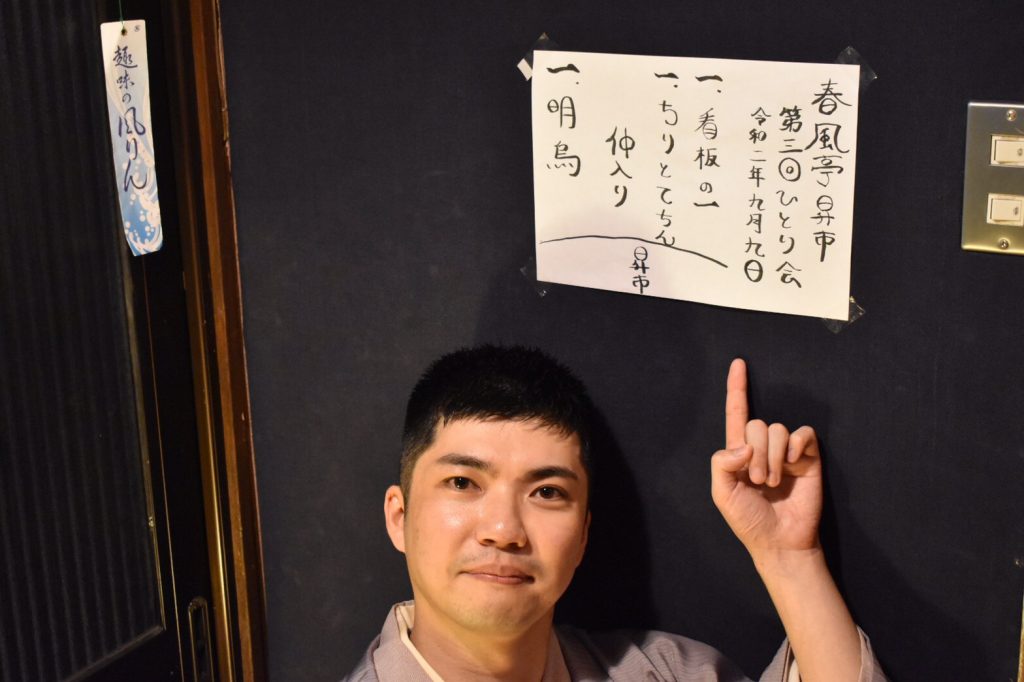 春風亭昇市
第三回ひとり会
令和二年九月九日
一、看板の一
一、ちりとてちん
仲入り
一、明烏
昇市
趣味の風りん